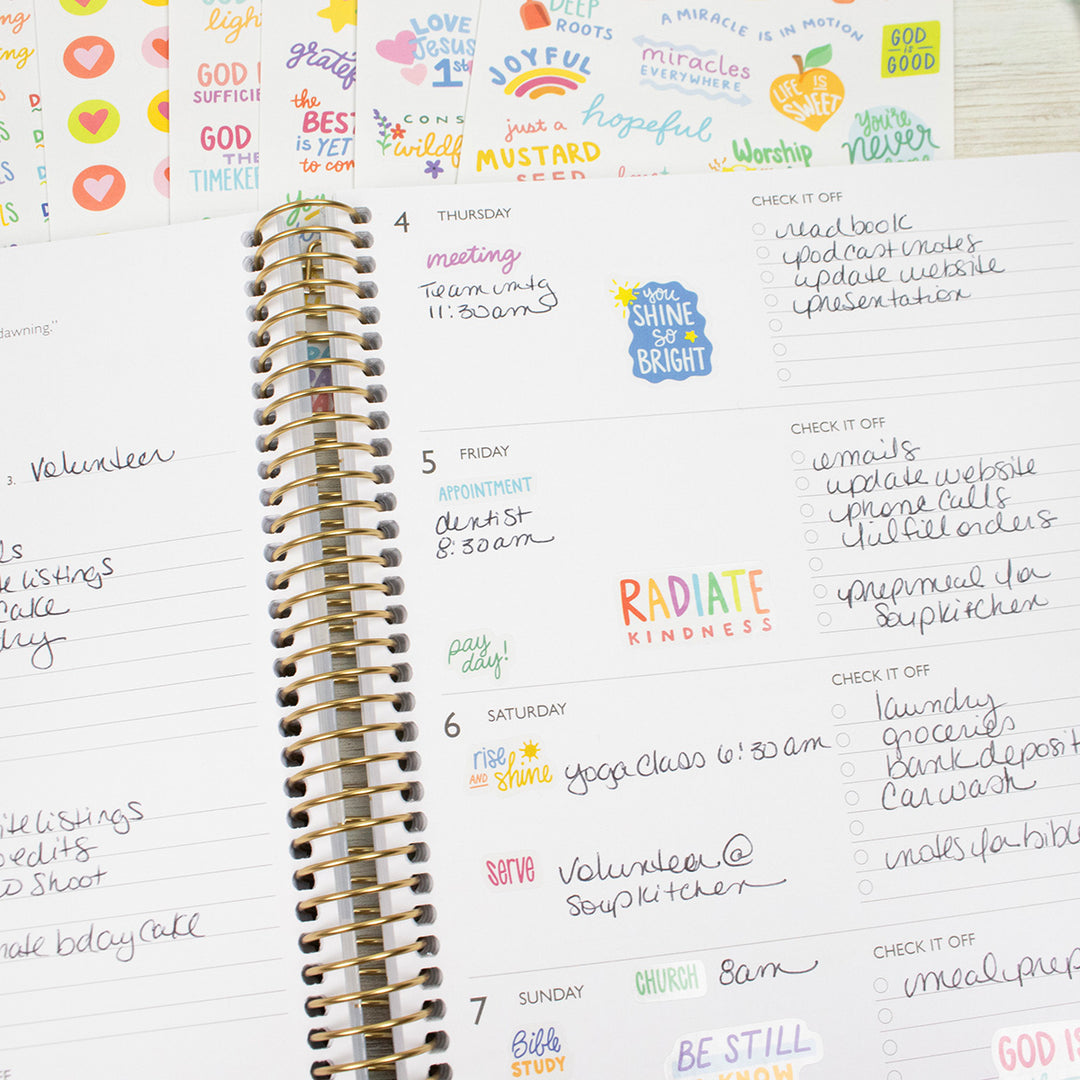 light
GOD IS
SUFFICIE
GOD
THE
TIMEKE
grateful
the
BEST
is YET
to com
LOVE
Jesus
1st
CONS
wildf
DEEP
ROOTS
JOYFUL
just a
MUSTARD
SEED
A MIRACLE IS IN MOTION
miracles
EVERYWHERE
hopeful
LIFE IS
SWEET
GOD
is
GOOD
Worship
You're
never
dawning."
3. Volunteer
te listings
cake
dry
ite listings
edits
shoot
bday cake
4 THURSDAY
meeting
Team mtg
11:30am
you
SHINE
So
BRIGHT
CHECK IT OFF
read book
podcast notes
update website
presentation
5 FRIDAY
APPOINTMENT
dentist
8:30am
pay
day!
RADIATE
KINDNESS
CHECK IT OFF
emails
update website
phone calls
fulfill orders
prep meal for
Soup kitchen
6 SATURDAY
rise
AND shine
yoga class 6:30am
serve
Volunteer @
Soup kitchen
CHECK IT OFF
laundry
groceries
bank deposit
Car wash
notes for bible
7 SUNDAY
CHURCH 8am
Bible
STUDY
BE STILL
KNOW
CHECK IT OFF
meal prep
GOD IS